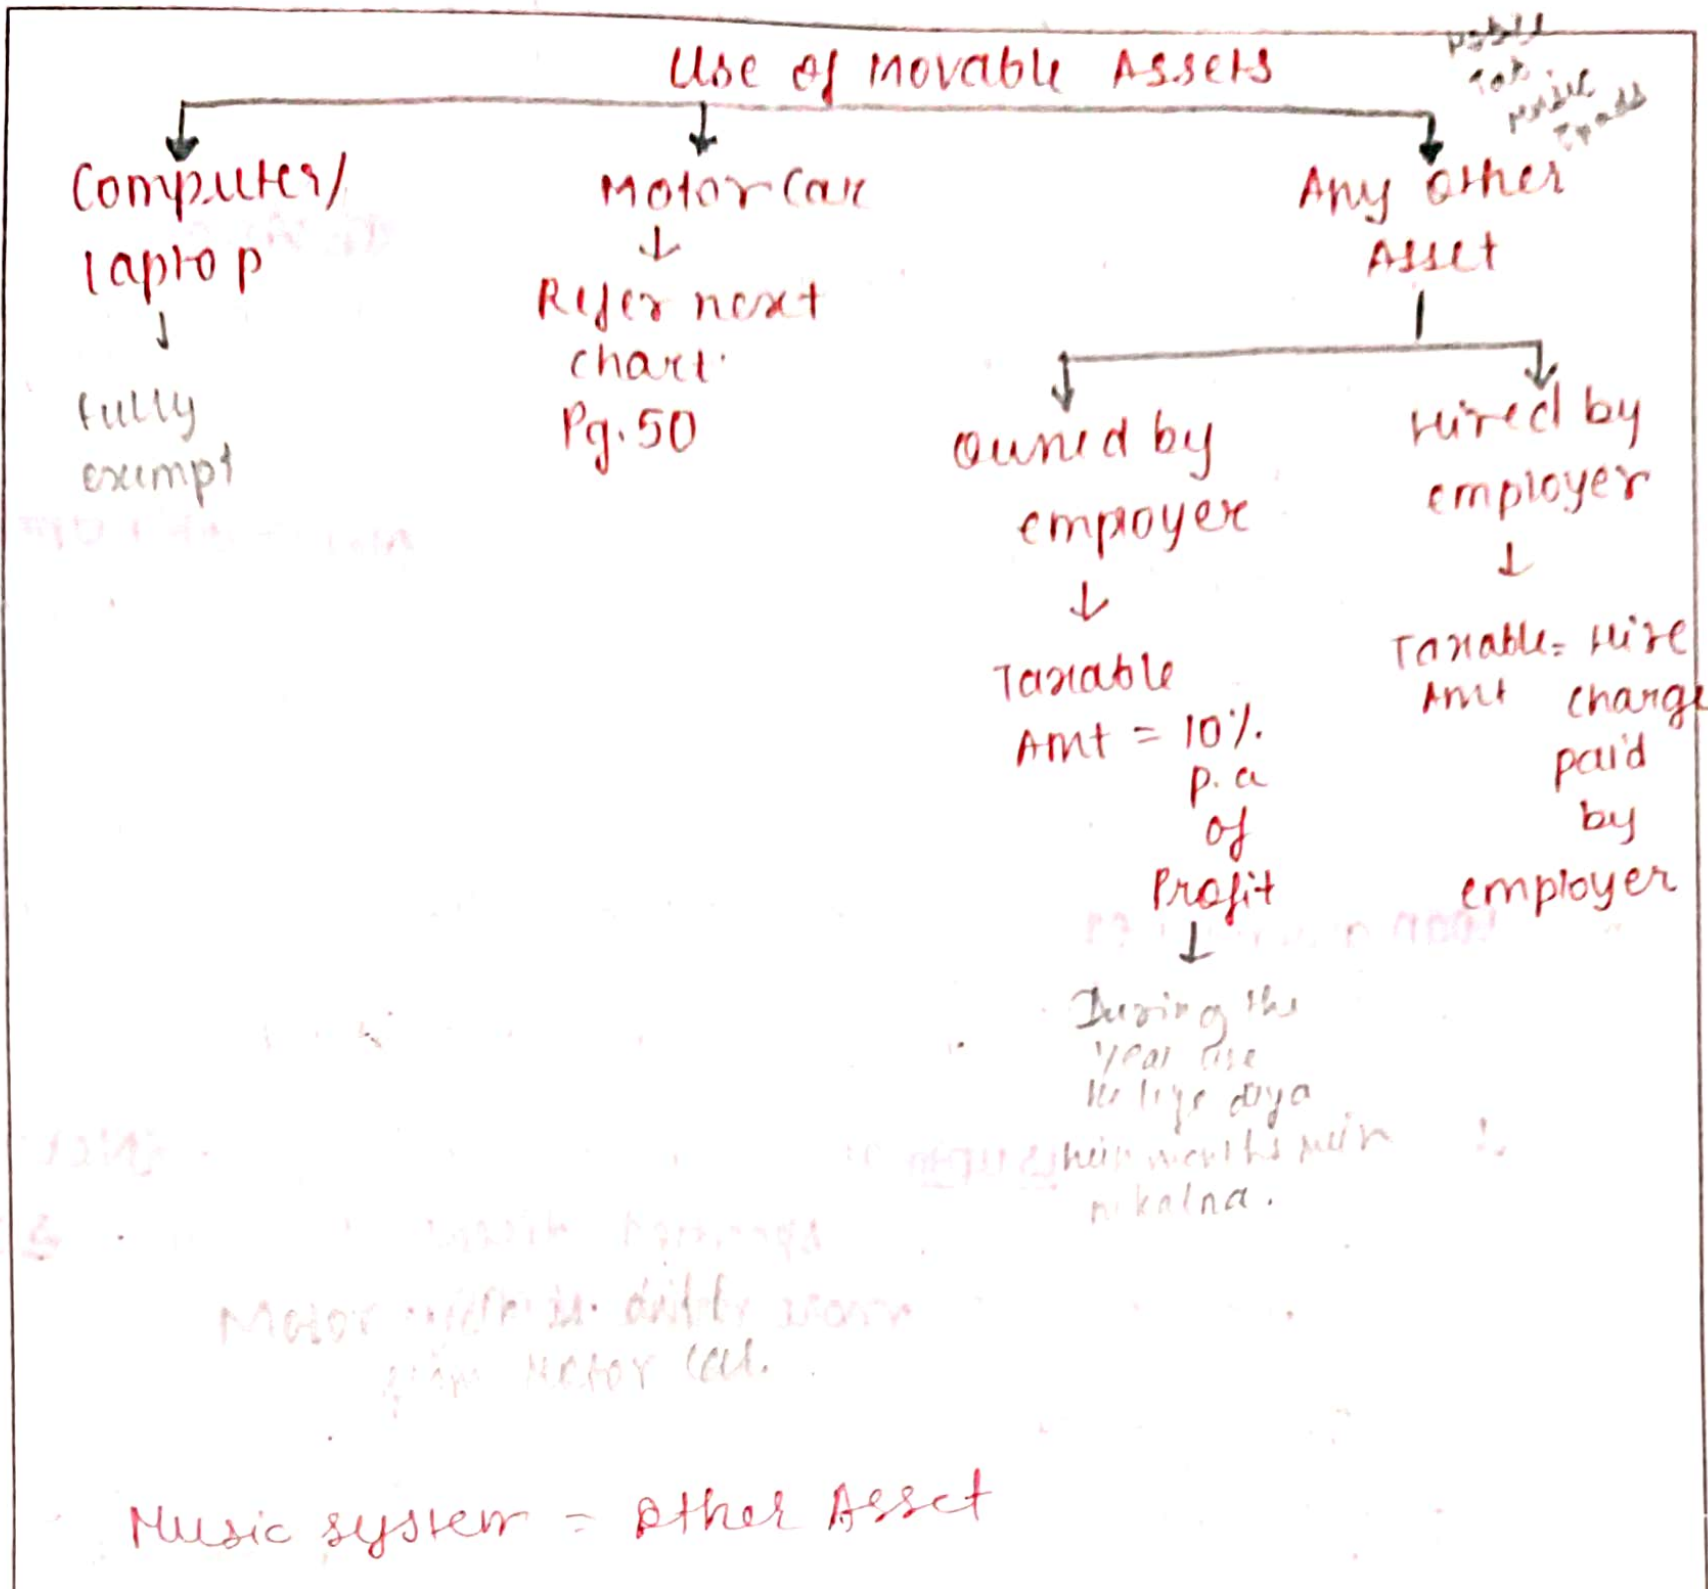 Use of Movable Assets
Mobile
Tab
Music
Ipads
Computer/
laptop
fully
exempt
Motor Car
Refer next
chart.
Pg. 50
Any other
Asset
Owned by
employer
Taxable
Amt = 10%.
p.a
of
Profit
During the
year use
ke liye diya
hein months mein
nikalna.
Hired by
employer
Taxable = Hire
Amt charge
paid
by
employer
Motor
Motor Car.
Music system = Other Asset